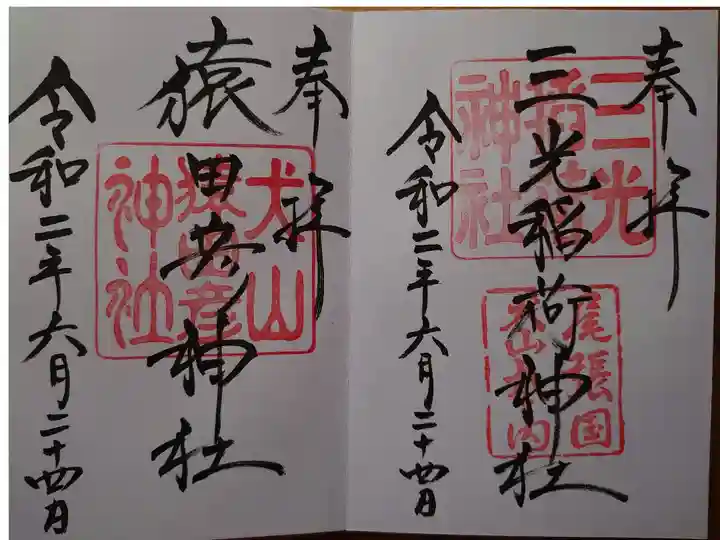 奉拝
三光稲荷神社
三光
稲荷
神社
尾張国
犬山城内
令和二年六月二十四日
奉拝
猿田彦神社
犬山
猿田彦
神社
令和二年六月二十四日